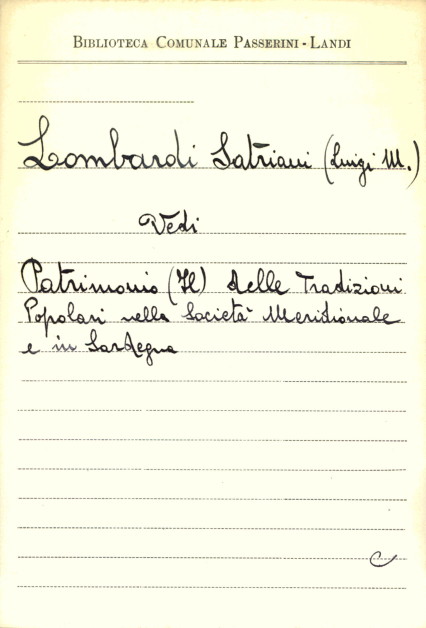 BIBLIOTECA COMUNALE PASSERINI - LANDI
Lombardi Satriani (Luigi M.)
Vedi
Patrimonio (Il) delle Tradizioni
Popolari nella Società Meridionale
e in Sardegna